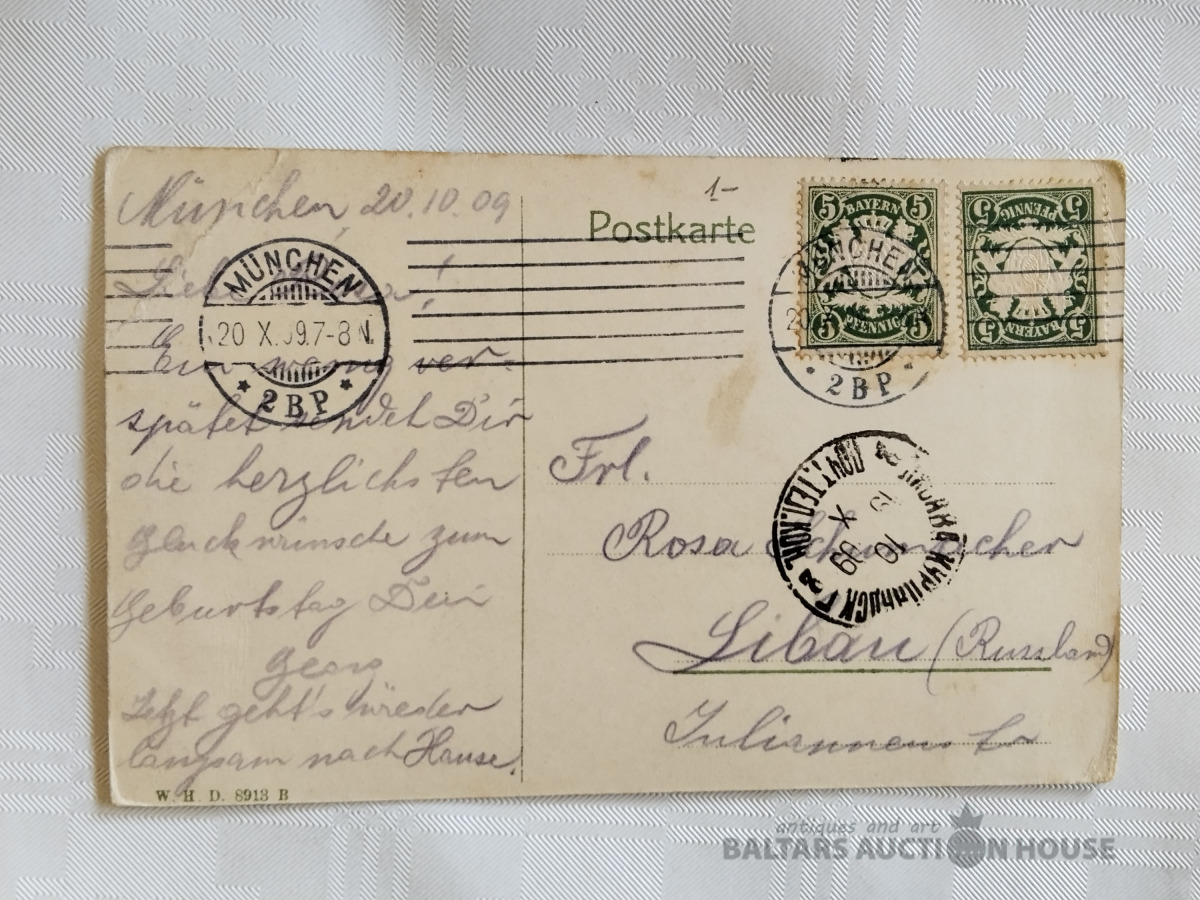 München, 20.10.09
Liebe !
Ein wenig ver-
spätet sendet Dir
die herzlichsten
Glückwünsche zum
Geburtstag Dein
Georg
Jetzt geht's wieder
langsam nach Hause.
W. H. D. 8913 B
MÜNCHEN
20 X. 09. 7-8 N.
* 2 B P *
1-
Postkarte
5 BAYERN 5
5 PFENNIG 5
5 PFENNIG 5
5 BAYERN 5
MÜNCHEN
20
2 B P
Frl.
Rosa Schumacher
Libau (Russland)
Juliannen
ПОЧ. ТЕЛ. КОН.
КУРЛЯНДСК. Г.
10
X
09
antiques and art
BALTARS AUCTION HOUSE